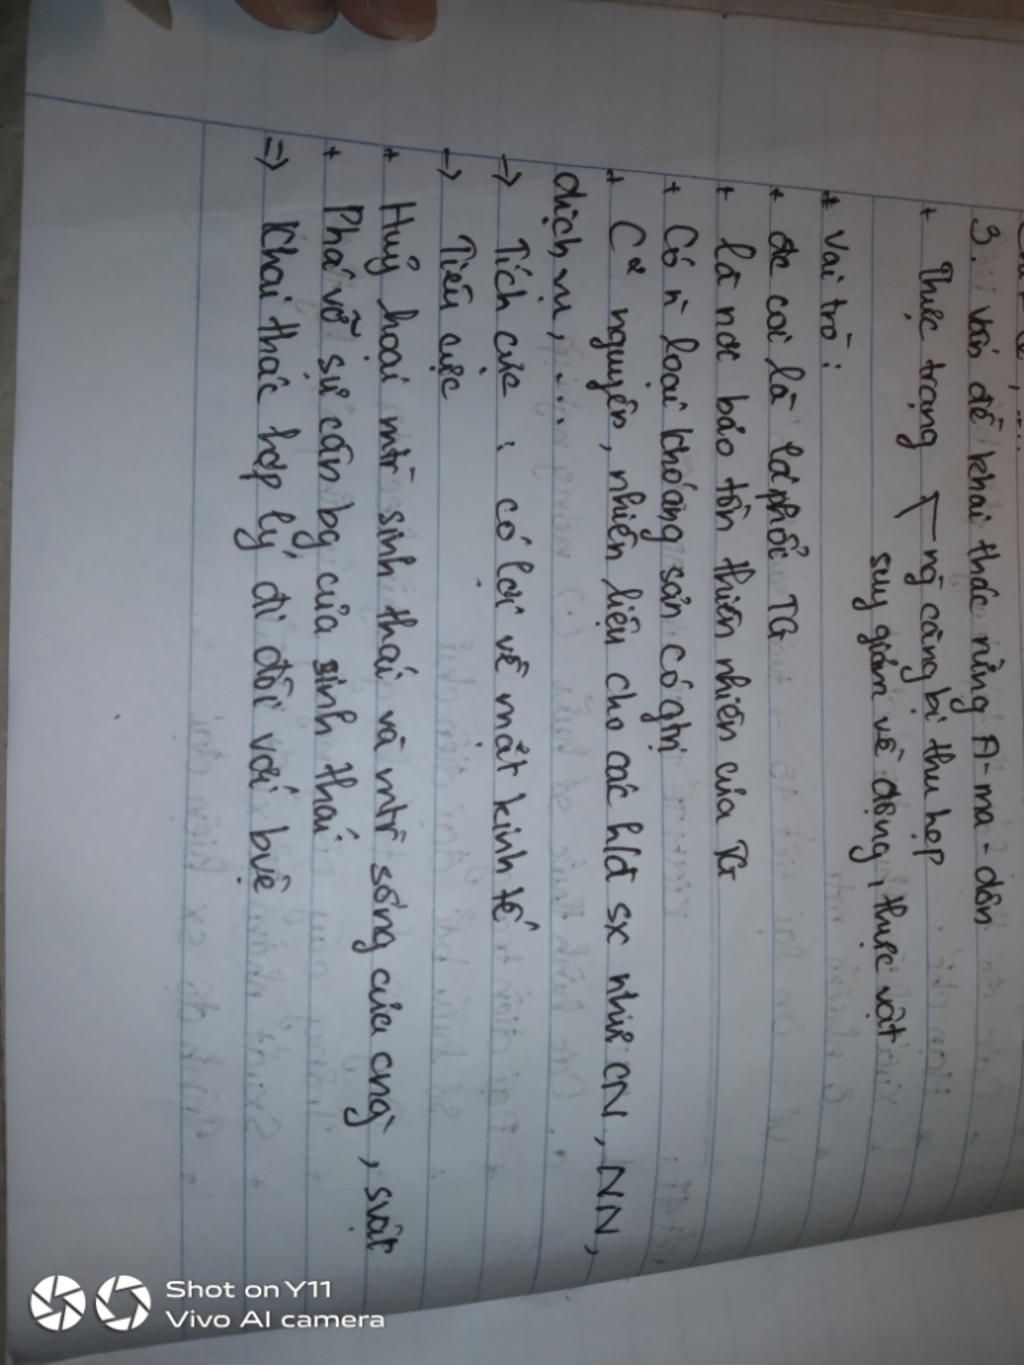 3. Vấn đề khai thác rừng A-ma-dôn
+ Thực trạng ngˋ càng bị thu hẹp
suy giảm về động, thực vật
+ Vai trò:
+ đc coi là lá phổi TG
+ là nơi bảo tồn thiên nhiên của TG
+ Có n̄ loại khoáng sản có gtrị
+ C² nguyên, nhiên liệu cho các hđ sx như CN, NN,
dịch vụ,...
→ Tích cực: có lợi về mặt kinh tế
→ Tiêu cực
+ Huỷ hoại mtr sinh thái và mtr sống của cng`, svật
+ Phá vỡ sự cân bg của sinh thái
=> Khai thác hợp lý đi đôi với bvệ
Shot on Y11
Vivo AI camera